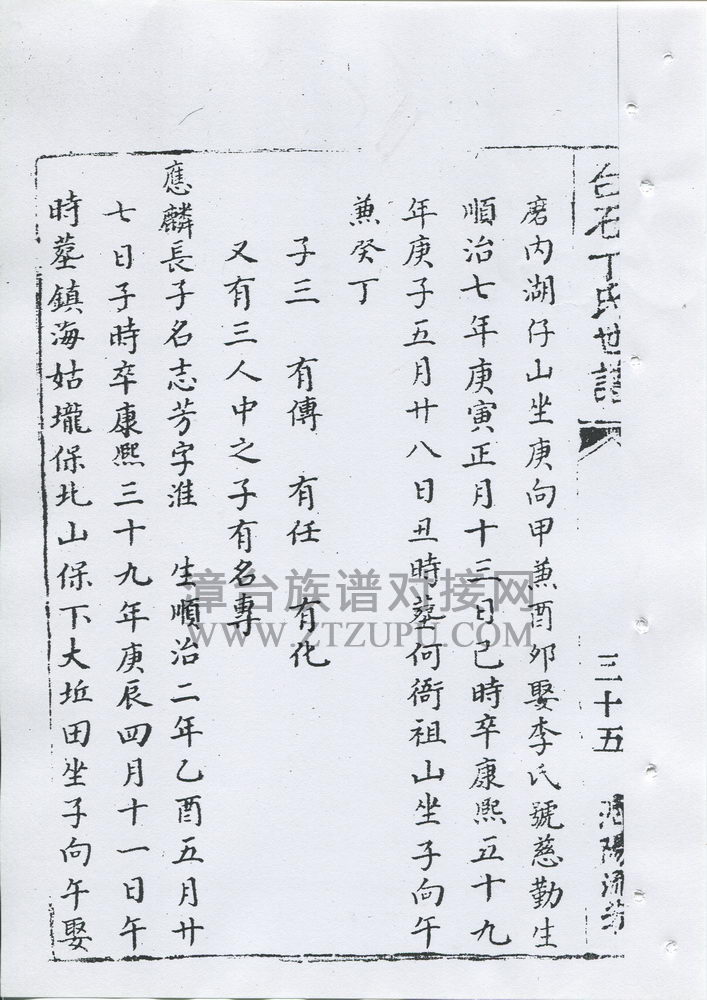 白石丁氏世譜
三十五
磨內湖仔山坐庚向甲兼酉卯娶李氏號慈勤生
順治七年庚寅正月十三日巳時卒康熙五十九
年庚子五月廿八日丑時墓何衙祖山坐子向午
兼癸丁
子三 有傳 有任 有化
又有三人中之子有名專
應麟長子名志芳字淮 生順治二年乙酉五月廿
七日子時卒康熙三十九年庚辰四月十一日午
時墓鎮海姑壠保北山保下大坵田坐子向午娶
漳台族谱对接网
WWW.ZTZUPU.COM